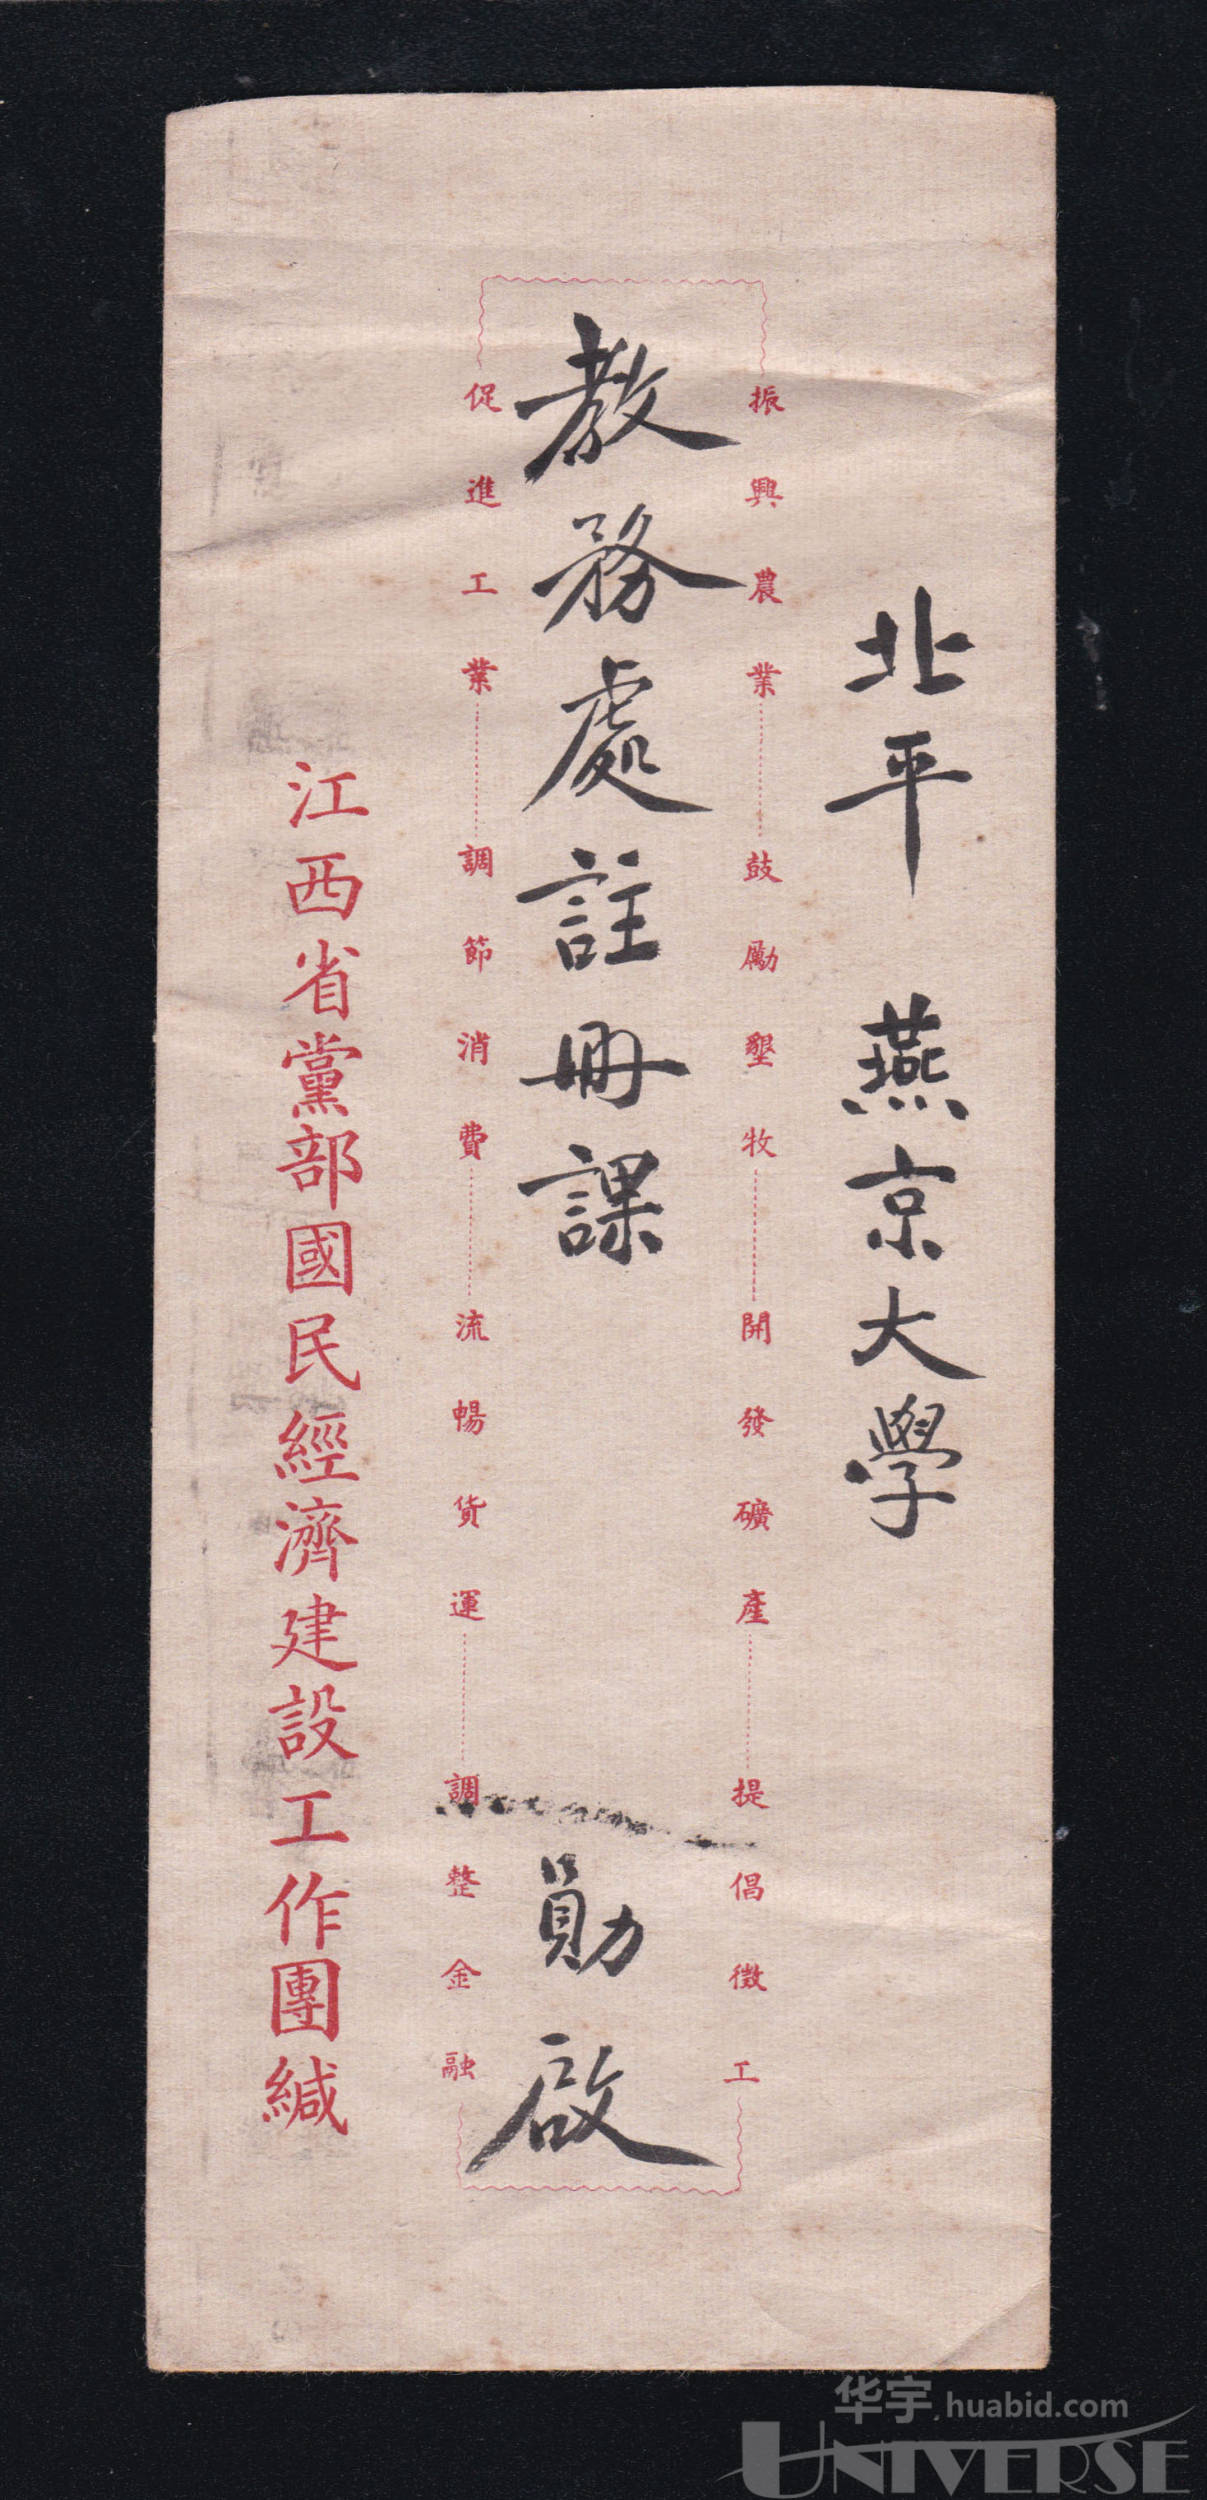 北平 燕京大學
振興農業 鼓勵墾牧 開發礦產 提倡徵工
教務處註冊課 勛啟
促進工業 調節消費 流暢貨運 調整金融
江西省黨部國民經濟建設工作團緘
华宇.huabid.com
UNIVERSE